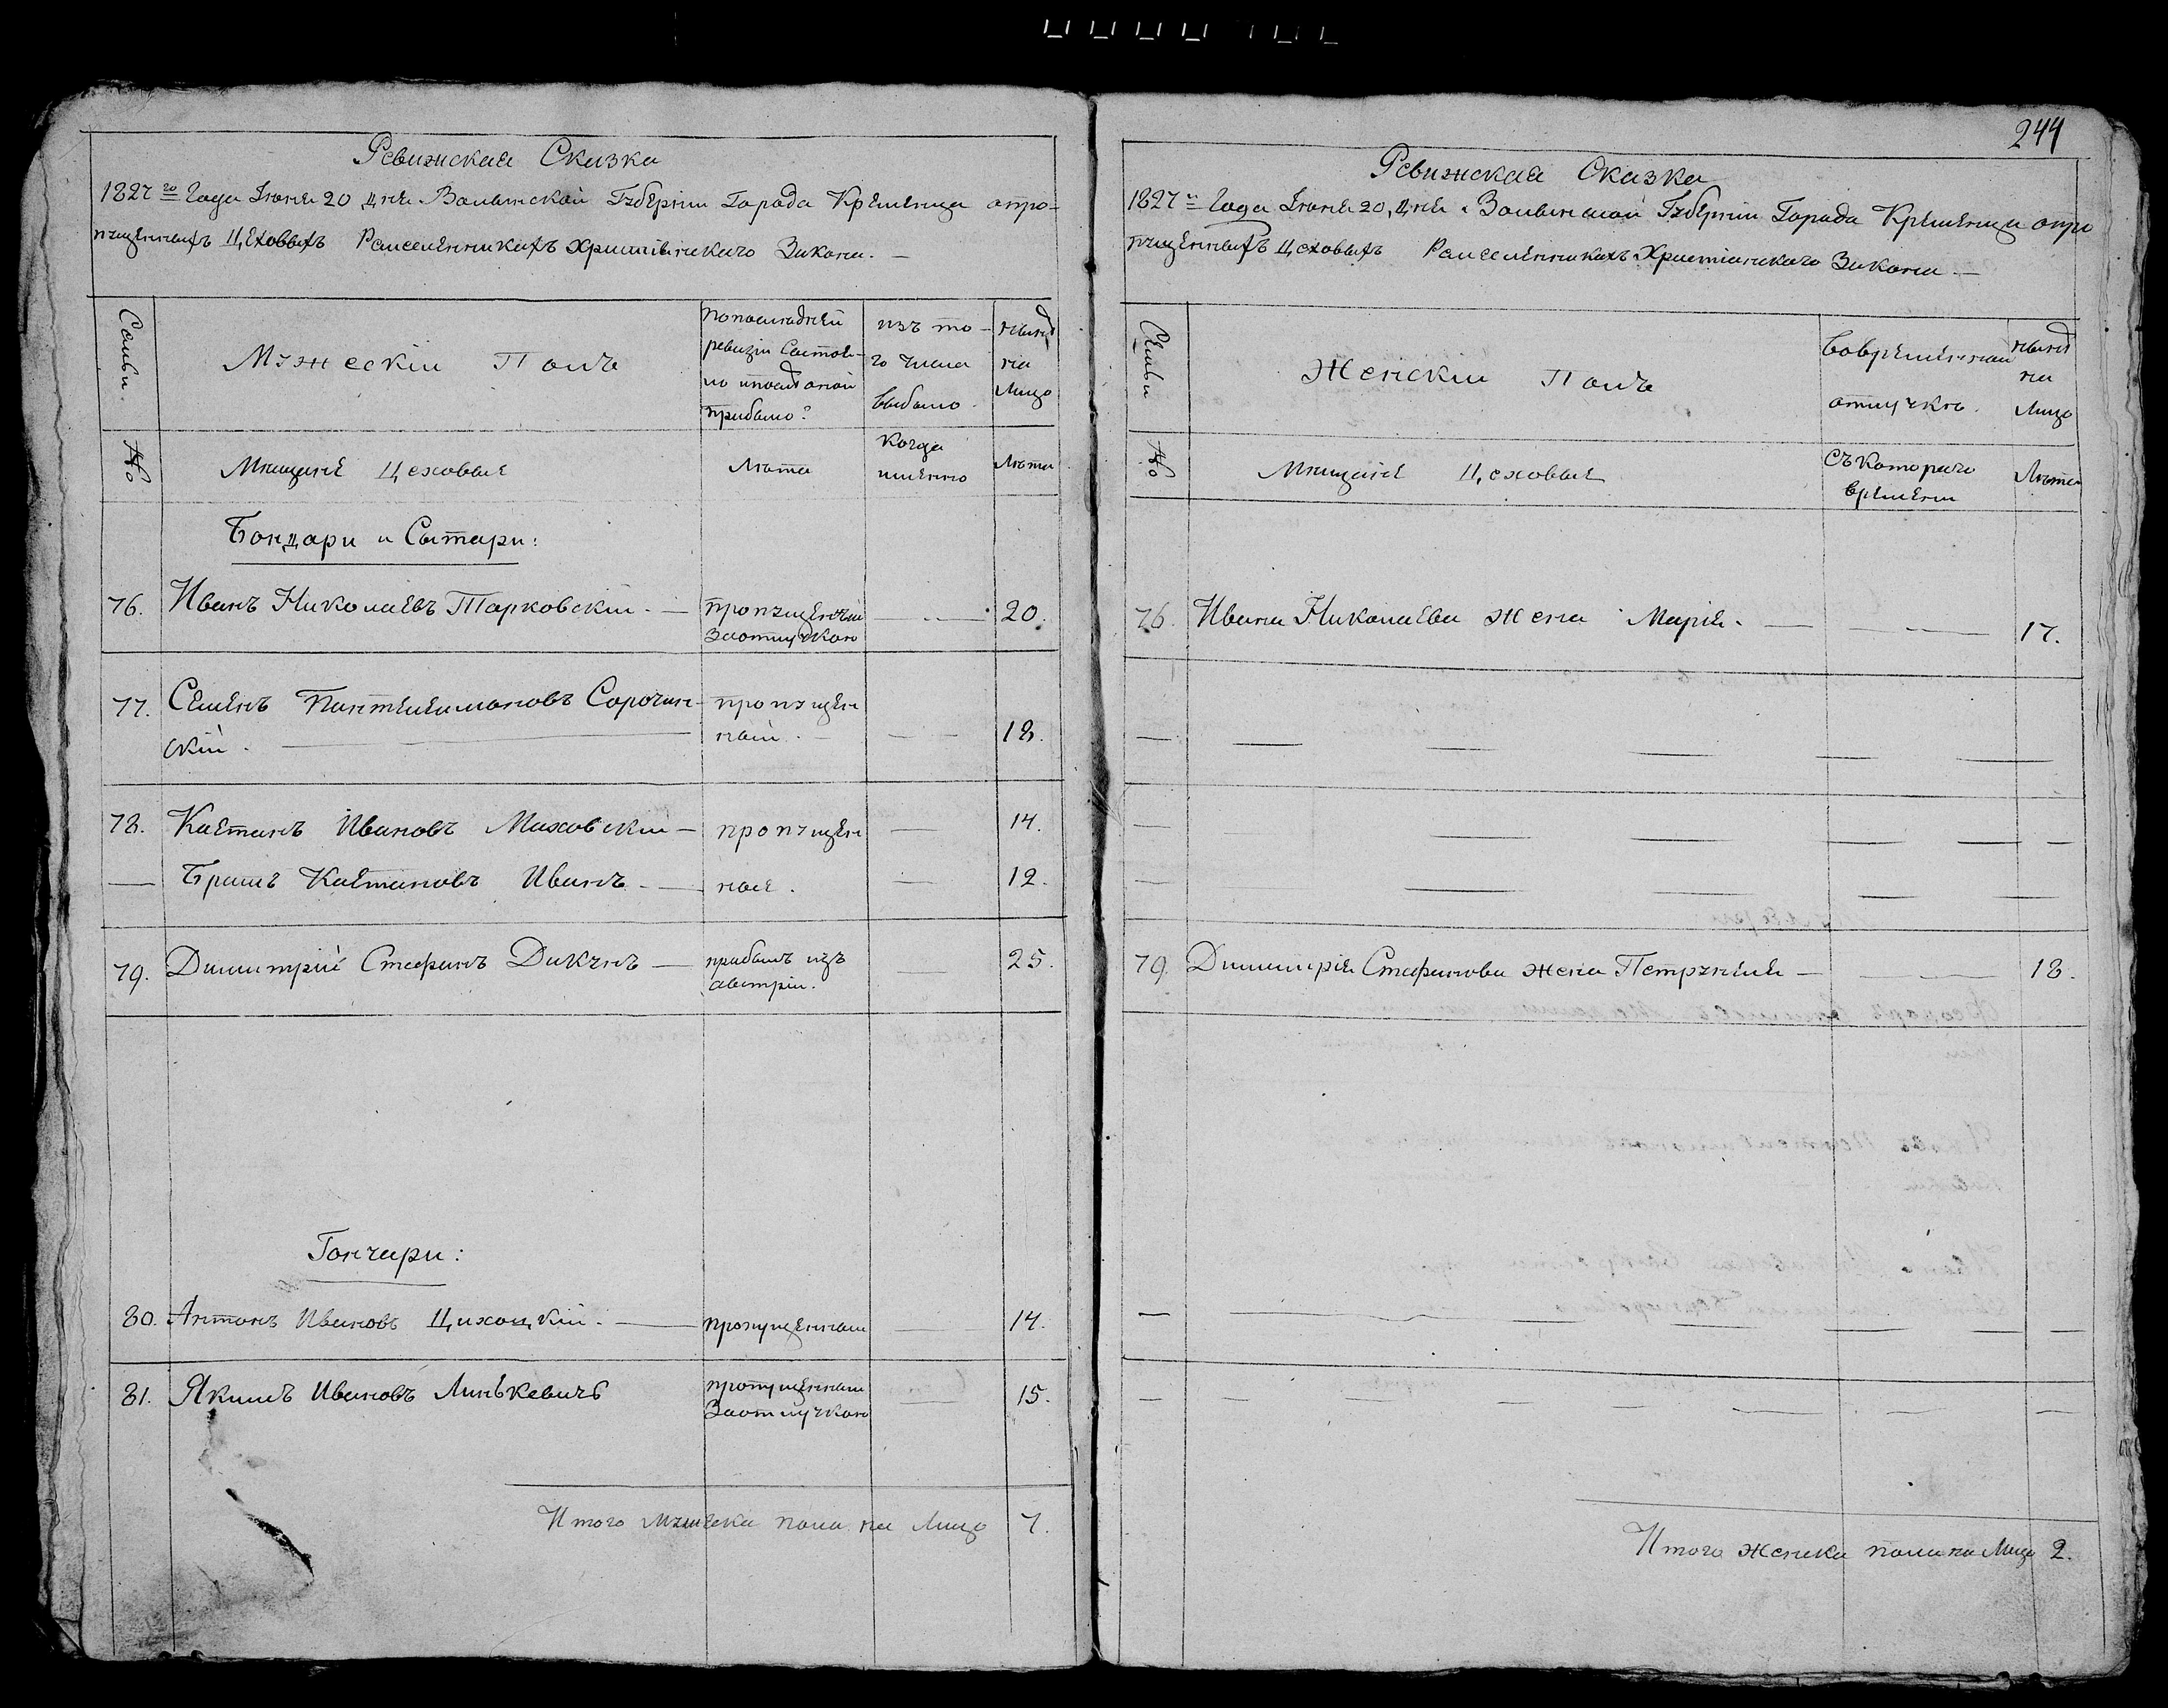 244
Ревижская Сказка
1827го Года Іюня 20 дня Волынской Губерніи Города Кременца о про-
пущенныхъ Цеховыхъ Ремесленникахъ Христіянскаго Закона. —
Семьи.
Мужескій Полъ
попоследней
ревизіи Состоя-
ло и после оной
прибыло?
изъ то-
го числа
выбыло
ныне
на
Лицо
№
Мещане Цеховые
Лета
когда
именно
Лета
Бондари и Сытари:
76. Иванъ Николаевъ Тарковскій. — пропущенный — 20.
заотлучкою
77. Семенъ Пантелеимоновъ Сорочин- пропущен
скій. — ный. — — 18.
78. Каетанъ Ивановъ Маховскій — пропущен — 14.
— Братъ Каетановъ Иванъ — ные. — 12.
79. Димитрій Стефанъ Дикунъ — прибылъ изъ 25.
австріи.
Гончари:
80. Антонъ Ивановъ Цихоцкій. — пропущенный — 14.
81. Якимъ Ивановъ Линькевичъ пропущенный — 15.
Заотлучкою
Итого мужеска пола на Лицо 7.
Ревижская Сказка
1827 Года Іюня 20, дня Волынской Губерніи Города Кременца о про
пущенныхъ Цеховыхъ Ремесленникахъ Христіянскаго Закона —
Семьи
Женскій Полъ
Вовременной
отлучке.
ныне
на
Лицо
№
Мещане Цеховые
Съ котораго
времени
Лета
76. Ивана Николаева жена Марія. — — 17.
79. Димитрія Стефанова жена Петрунеля — — 18.
Итого женска пола на Лицо 2.